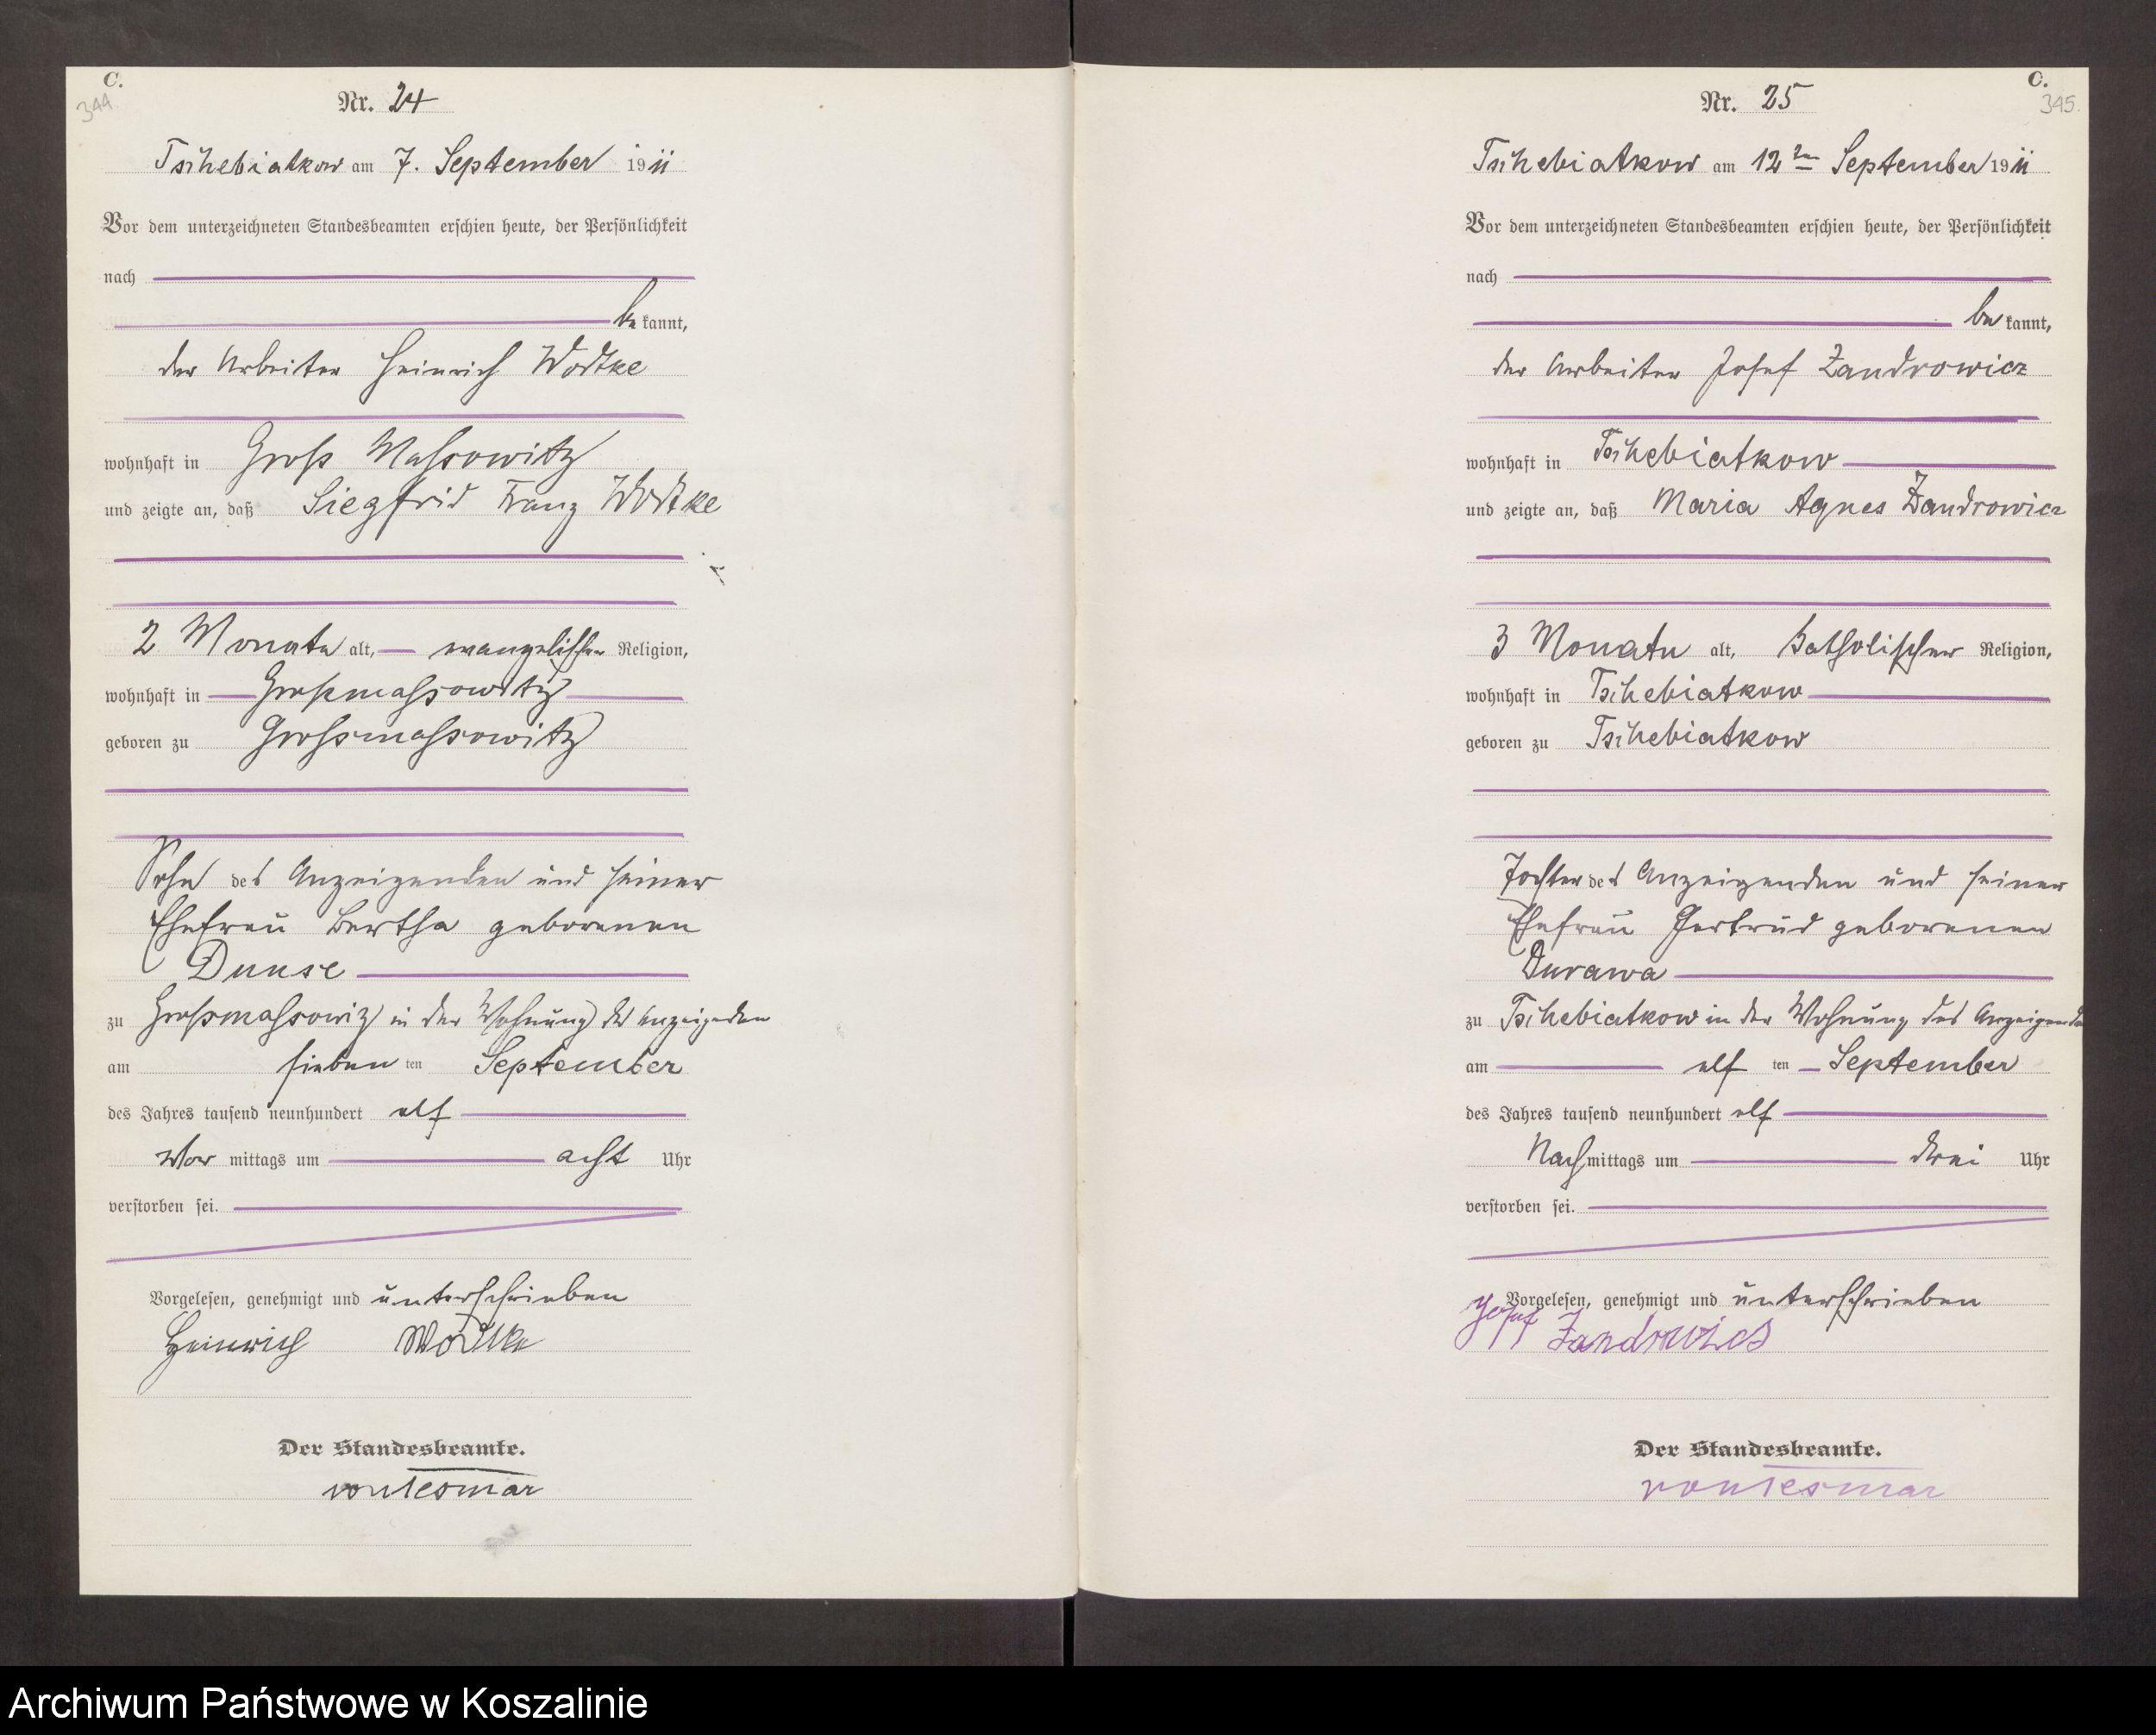 C.
344
Nr. 24
Tschebiatkow am 7. September 1911
Vor dem unterzeichneten Standesbeamten erschien heute, der Persönlichkeit
nach
be kannt,
der Arbeiter Heinrich Wodtke
wohnhaft in Gross Massowitz
und zeigte an, daß Siegfrid Franz Wodtke
2 Monate alt, evangelischer Religion,
wohnhaft in Grossmassowitz
geboren zu Grossmassowitz
Sohn des Anzeigenden und seiner
Ehefrau Bertha geborenen
Dunse
zu Grossmassowitz in der Wohnung des Anzeigenden
am sieben ten September
des Jahres tausend neunhundert elf
Vor mittags um acht Uhr
verstorben sei.
Vorgelesen, genehmigt und unterschrieben
Heinrich Wodtke
Der Standesbeamte.
von Tesmar
C.
345.
Nr. 25
Tschebiatkow am 12ten September 1911
Vor dem unterzeichneten Standesbeamten erschien heute, der Persönlichkeit
nach
be kannt,
der Arbeiter Josef Zandrowicz
wohnhaft in Tschebiatkow
und zeigte an, daß Maria Agnes Zandrowicz
3 Monate alt, katholischer Religion,
wohnhaft in Tschebiatkow
geboren zu Tschebiatkow
Tochter des Anzeigenden und seiner
Ehefrau Gertrud geborenen
Durawa
zu Tschebiatkow in der Wohnung des Anzeigenden
am elf ten September
des Jahres tausend neunhundert elf
Nach mittags um drei Uhr
verstorben sei.
Vorgelesen, genehmigt und unterschrieben
Josef Zandrowics
Der Standesbeamte.
von Tesmar
Archiwum Państwowe w Koszalinie